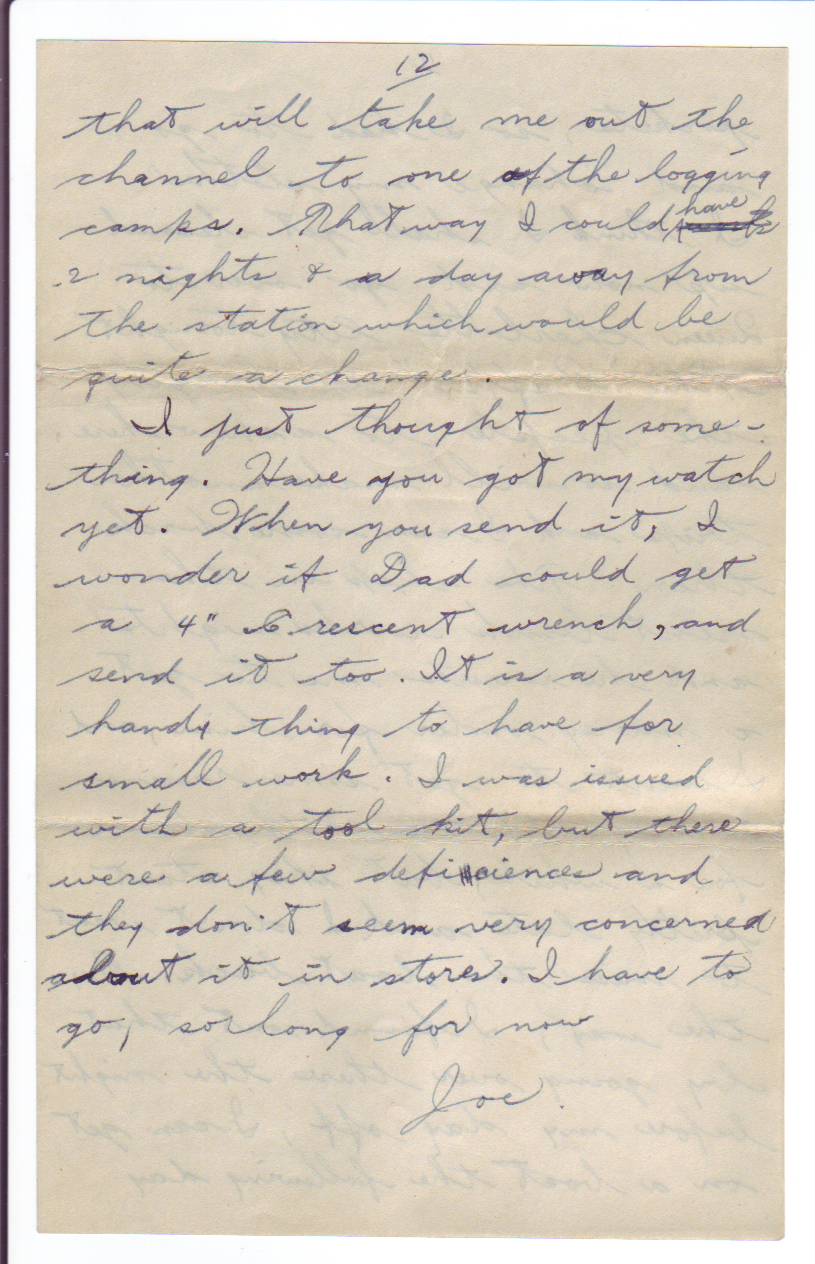 12
that will take me out the
channel to one of the logging
camps. That way I could have
2 nights & a day away from
the station which would be
quite a change.
I just thought of some-
thing. Have you got my watch
yet. When you send it, I
wonder if Dad could get
a 4" Crescent wrench, and
send it too. It is a very
handy thing to have for
small work. I was issued
with a tool kit, but there
were a few deficiences and
they don't seem very concerned
about it in stores. I have to
go, so long for now
Joe.